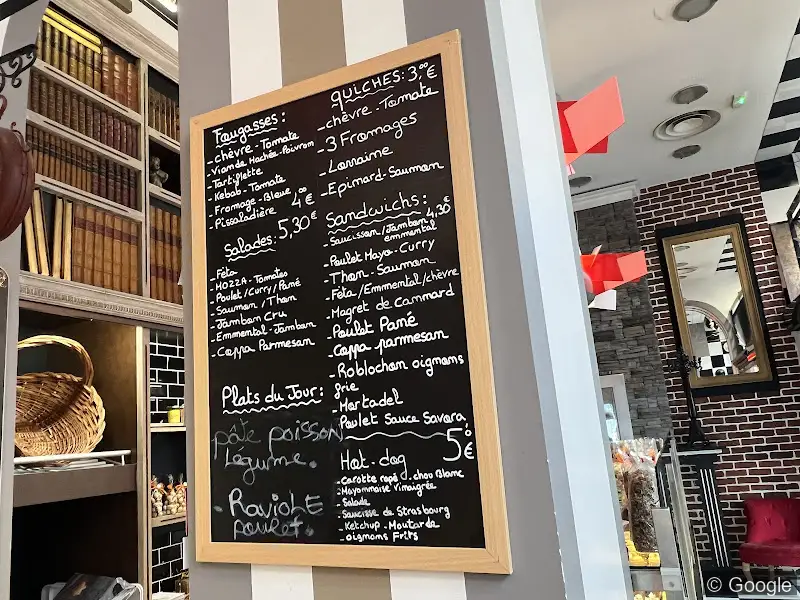 Fougasses:
-chèvre-Tomate
-Viande Hachée-Poivron
-Tartiflette
-Kebab-Tomate
-Fromage-Bleue
-Pissaladière 4,00€
Salades: 5,30€
-Féta
-MOZZA-Tomates
-Poulet/Curry/Pané
-Saumon/Thon
-Jambon Cru
-Emmental-Jambon
-Coppa Parmesan
Plats du Jour:
pâte poisson
légume.
-Raviole
poulet.
QUICHES: 3,00€
-chèvre-Tomate
-3 Fromages
-Lorraine
-Epinard-Saumon
Sandwichs: 4,30€
-Saucisson/Jambon
emmental
-Poulet Mayo-Curry
-Thon-Saumon
-Féta/Emmental/chèvre
-Magret de Cannard
-Poulet Pané
-Coppa parmesan
-Roblochon oignons
frie
-Mortadel
Poulet Sauce Savora
Hot-dog 5,0€
-Carotte rapé-chou Blanc
-Mayonnaise Vinaigrée
-Salade
-Saucisse de Strasbourg
-Ketchup-Moutarde
-oignons Frits
© Google